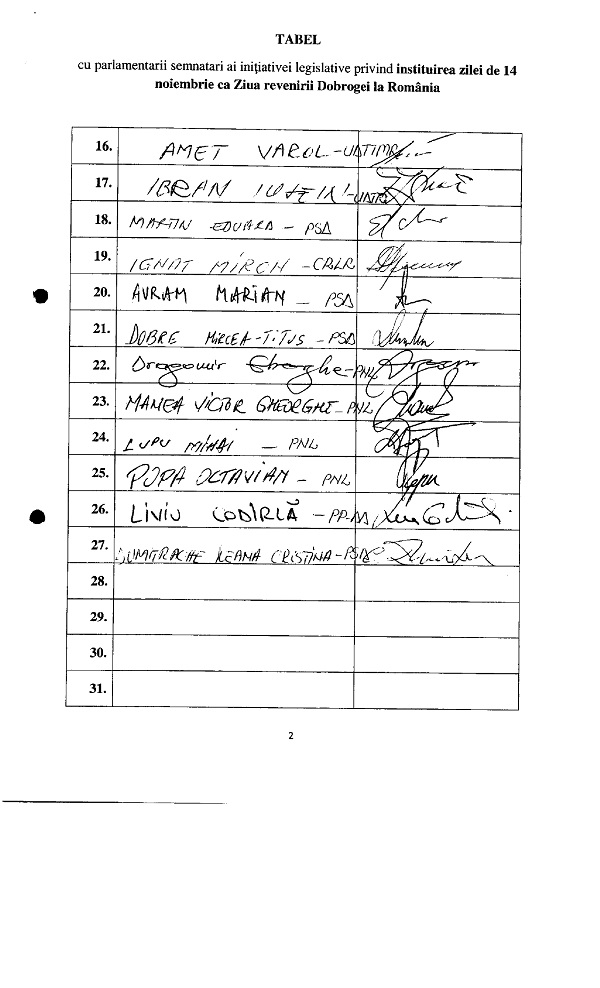 TABEL
cu parlamentarii semnatari ai inițiativei legislative privind instituirea zilei de 14
noiembrie ca Ziua revenirii Dobrogei la România
16. AMET VAROL - UDTTMR
17. IBRAM IUSEIN -
18. MARTIN EDUARD - PSD
19. IGNAT MIRCEA -
20. AVRAM MARIAN - PSD
21. DOBRE MIRCEA-TITUS - PSD
22. Dragomir Gheorghe - PNL
23. MANEA VICTOR GHEORGHE - PNL
24. LUPU MIHAI - PNL
25. POPA OCTAVIAN - PNL
26. LIVIU CODÎRLĂ - PP-DD
27. DUMITRACHE ILEANA CRISTINA - PSD
28.
29.
30.
31.
2